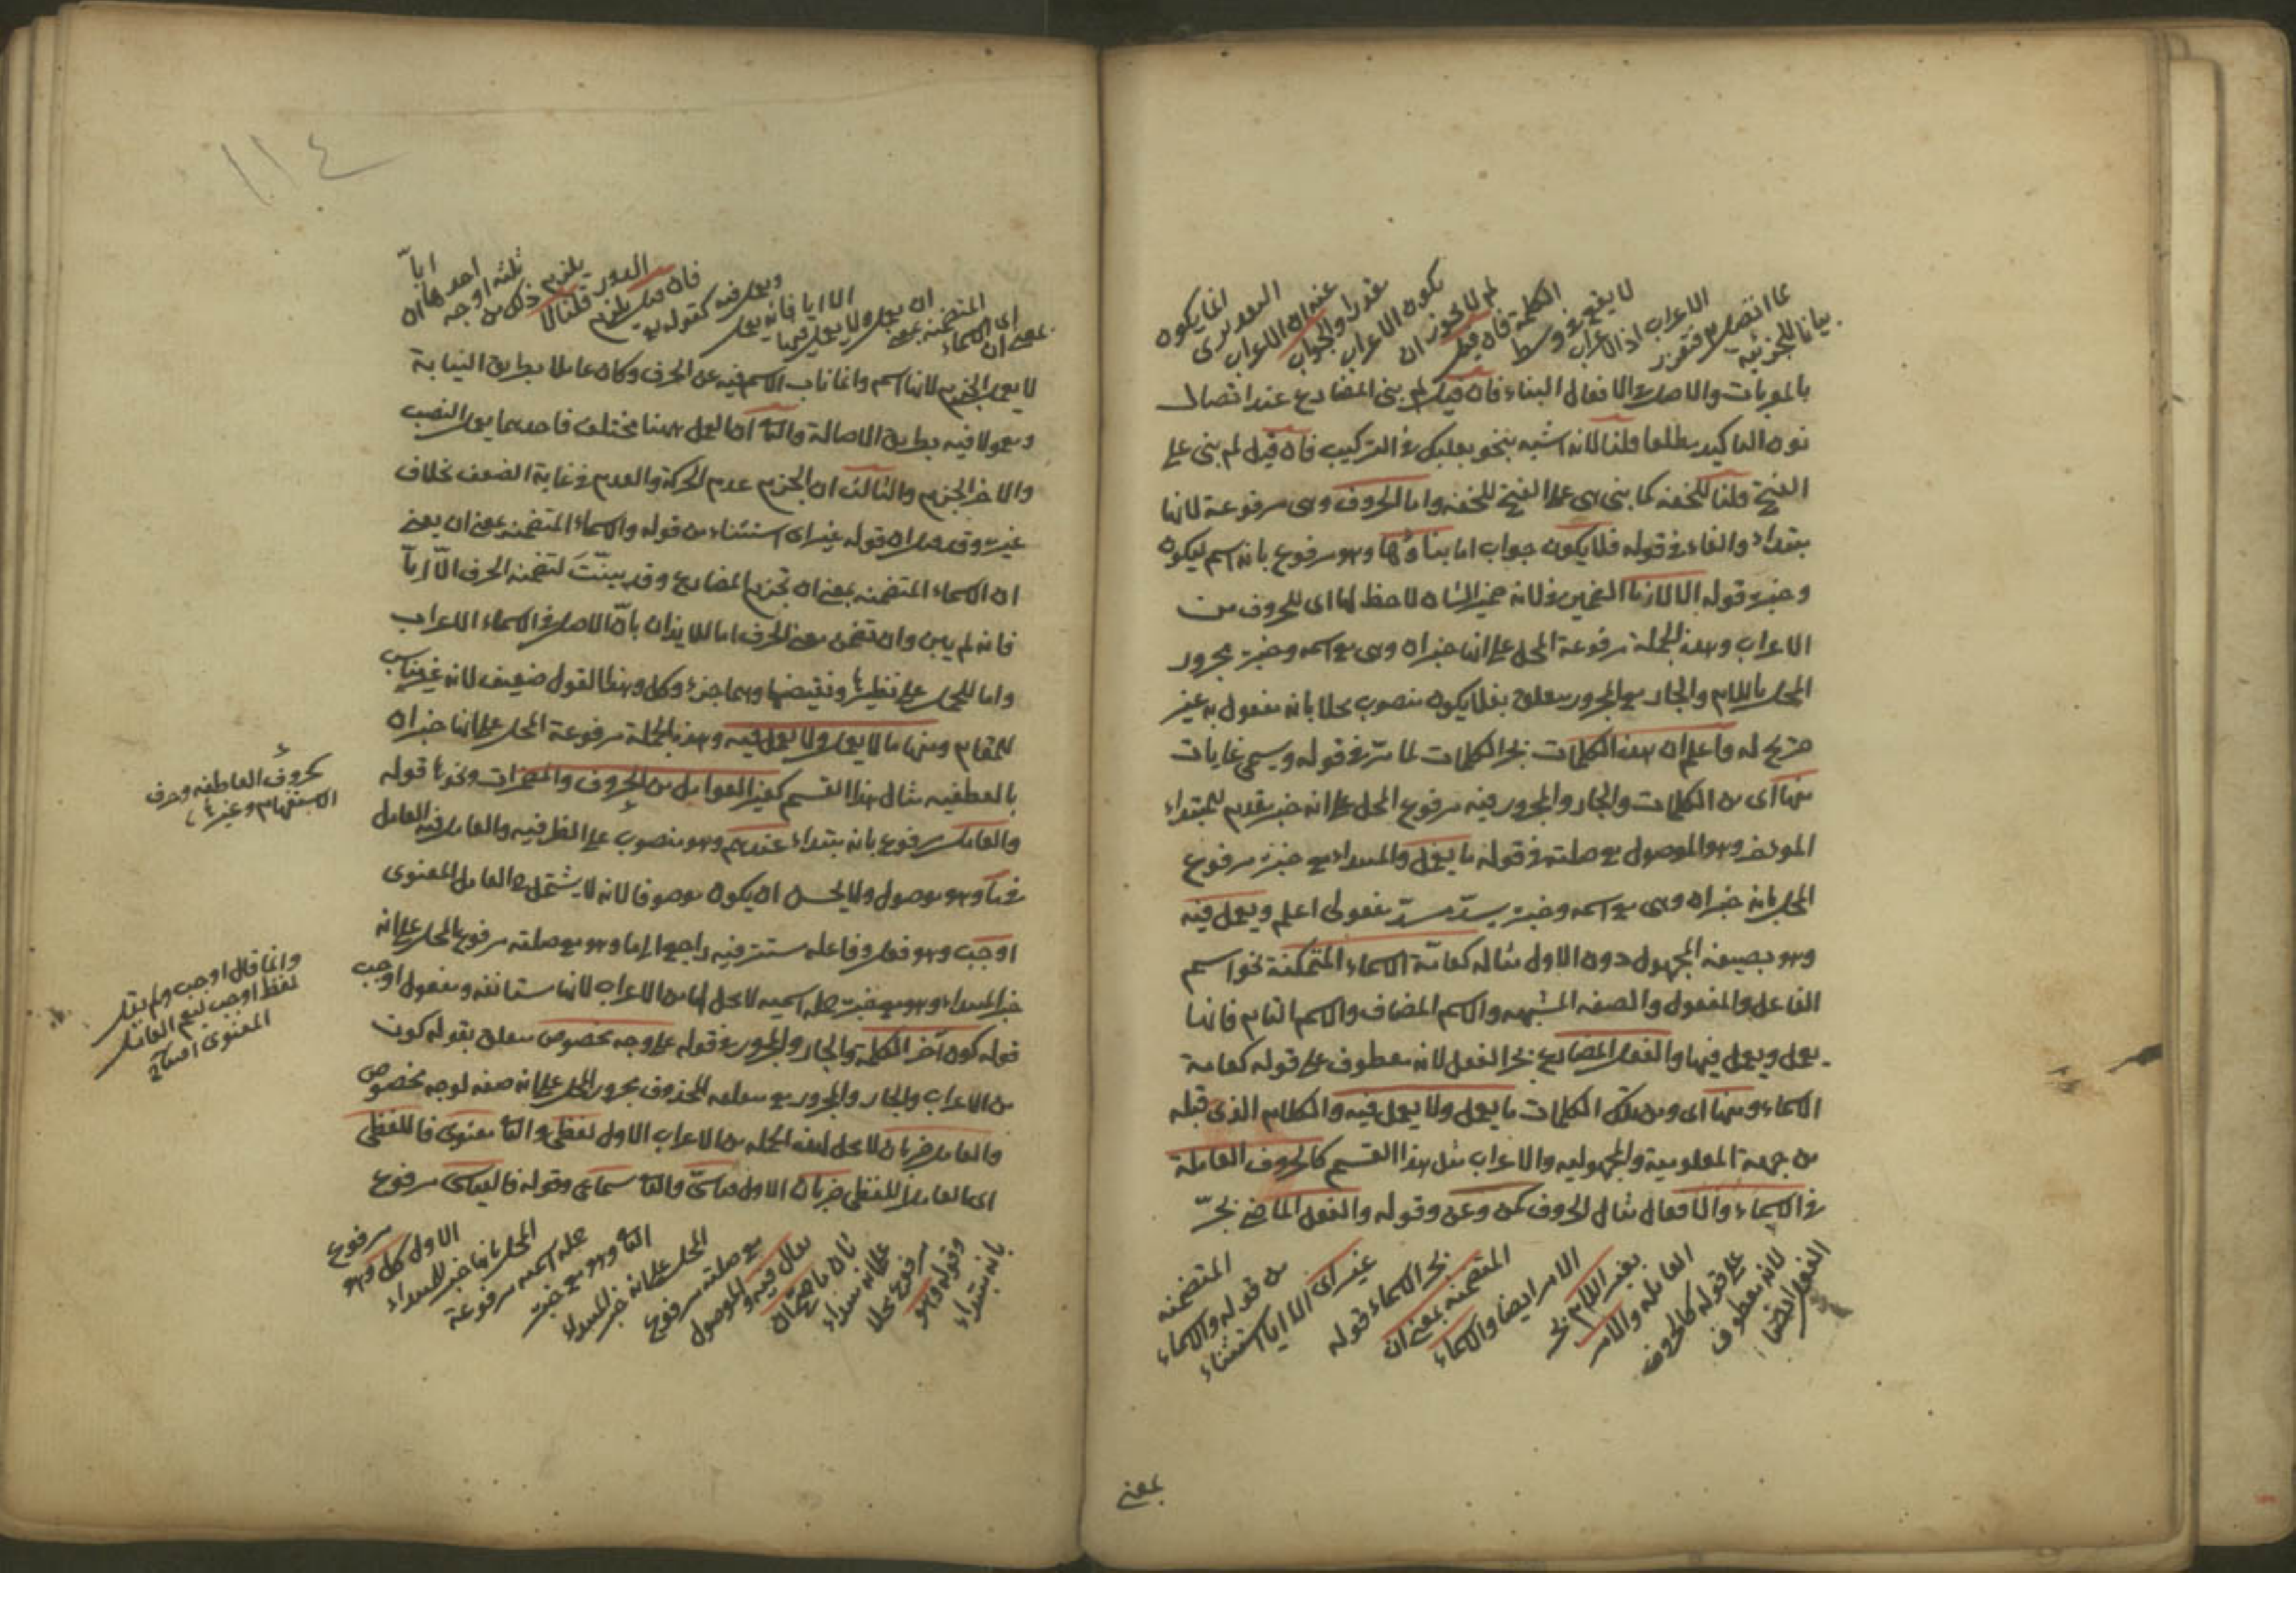 بيانا للجزئية
عما اتصل به فتعذر
الاعراب اذ الاعراب
لا يقع في وسط
الكلمة فان قيل
لم لا يجوز ان
يكون الاعراب
مقدرا والجواب
عنه ان الاعراب
التقديرى
انما يكون
بالمعربات والاصل في الافعال البناء فان قيل لم بنى المضارع عند اتصال
نون التاكيد مطلقا قلنا لانه اشبه بنحو بعلبك في التركيب فان قيل لم بنى على
الفتح قلنا للخفة كما بنى هى على الفتح للخفة واما الحروف وهى مرفوعة لانها
مبتداء والفاء في قوله فلا يكون جواب اما بناؤها وهو مرفوع بانه اسم ليكون
وخبره قوله الا لازما الضمير في لانه ضمير الشان لا حظ لها اى للحروف من
الاعراب وهذه الجملة مرفوعة المحل على انها خبر ان وهى مع اسمه وخبره مجرور
المحل باللام والجار مع المجرور متعلق بفلا يكون منصوب محلا بانه مفعول به غير
صريح له واعلم ان هذه الكلمات بجر الكلمات لما مر في قوله ويسمى غايات
منها اى من الكلمات والجار والمجرور فيه مرفوع المحل على انه خبر مقدم للمبتداء
المؤخر وهو الموصول مع صلته في قوله ما يعمل والمبتداء مع خبره مرفوع
المحل بانه خبر ان وهى مع اسمه وخبره يسدّ مسدّ مفعولى اعلم ويعمل فيه
وهو بصيغة المجهول دون الاول مثاله كعامّة الاسماء المتمكنة نحو اسم
الفاعل والمفعول والصفة المشبهة والاسم المضاف والاسم التام فانها
يعمل ويعمل فيها والفعل المضارع بجر الفعل لانه معطوف على قوله كعامة
الاسماء ومنها اى ومن تلك الكلمات ما يعمل ولا يعمل فيه والكلام الذى قبله
من جهة المعلومية والمجهولية والاعراب مثل هذا القسم كالحروف العاملة
في الاسماء والافعال مثال الحروف كمن وعن وقوله والفعل الماضى بجرّ
الفعل ايضا
لانه معطوف
على قوله كالحروف
العاملة والامر
بغير اللام بجر
الامر ايضا والاسماء
المتضمنة بمعنى ان
بجر الاسماء قوله
غير اى الا ايا استثناء
من قوله والاسماء
المتضمنة
بمعنى
١١٤
بمعنى ان
اى الاسماء
المتضمنة بمعنى
ان يعمل ولا يعمل فيها
الا ايا فانه يعمل
ويعمل فيه كقوله
فان قيل يلزم
الدور قلنا لا
يلزم ذلك من
ثلثة اوجه
احدها ان
اياّ
لا يعمل الجزم لانها اسم وانما ناب الاسم فيه عن الحرف وكان عاملا بطريق النيابة
ومعمولا فيه بطريق الاصالة والثا ان العمل ههنا مختلف فاحدهما يعمل النصب
والاخر الجزم والثالث ان الجزم عدم الحركة والعدم في غاية الضعف بخلاف
غيره وقد قيل ان قوله غير اى استثناء من قوله والاسماء المتضمنة بمعنى ان يعنى
ان الاسماء المتضمنة بمعنى ان تجزم المضارع وقد بينّت لتضمنه الحرف الاّ اياّ
فانه لم يبين وان تضمن معنى الحرف اما للايذان بانّ الاصل في الاسماء الاعراب
واما للحمل على نظيرها ونقيضها وهما جزء وكل وهذا القول ضعيف لانه غير مناسب
للمقام ومنها ما لا يعمل ولا يعمل فيه وهذه الجملة مرفوعة المحل على انها خبر ان
بالعطفية مثال هذا القسم كغير العوامل من الحروف والمضمرات ونحوها قوله
والعامل مرفوع بانه مبتداء عندهم وهو منصوب على الظرفية والعامل فيه العامل
في ما وهو موصول ولا يحسن ان يكون موصوفا لانه لا يشتمل العامل المعنوى
اوجب وهو فعل وفاعله مستتر فيه راجع الى ما وهو مع صلته مرفوع المحل على انه
خبر المبتداء وهو مع خبره جملة اسمية لا محل لها من الاعراب لانها مستانفة ومفعول اوجب
قوله كون آخر الكلمة والجار والمجرور في قوله على وجه مخصوص متعلق بقوله كون
من الاعراب والجار والمجرور مع متعلقه المحذوف مجرور المحل على انه صفة لوجه مخصوص
والعامل ضربان لا محل لهذه الجملة من الاعراب الاول لفظى والثا معنوى فاللفظى
اى العامل اللفظى ضربان الاول قياسىّ والثا سماعى وقوله فالقياسى مرفوع
بانه مبتداء
وقوله وهو
مرفوع محلا
على انه مبتداء
ثان ما صح ان
يقال فيه والموصول
مع صلته مرفوع
المحل على انه خبر المبتداء
الثا وهو مع خبره
جملة اسمية مرفوعة
المحل بانها خبر للمبتداء
الاول كل وهو
مرفوع
كحروف العاطفة وحرف
الاستفهام وغيرها
وانما قال اوجب ولم يقل
لفظ اوجب ليعم العامل
المعنوى ايضا